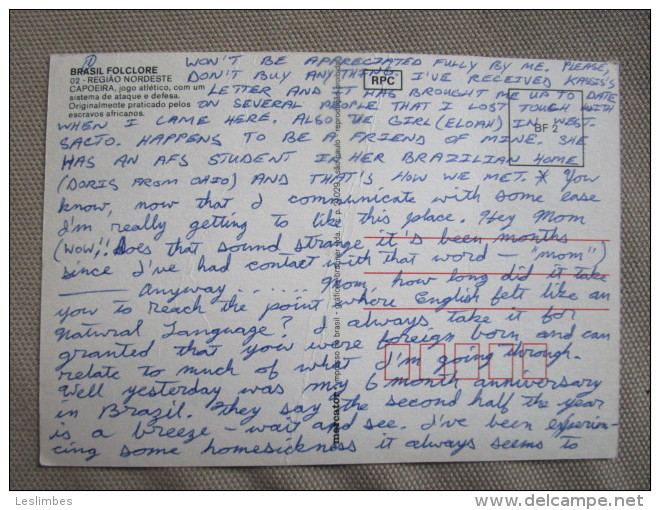 BRASIL FOLCLORE
02 - REGIÃO NORDESTE
CAPOEIRA, jogo atlético, com um
sistema de ataque e defesa.
Originalmente praticado pelos
escravos africanos.
RPC
BF 2
WON'T BE APPRECIATED FULLY BY ME. PLEASE,
DON'T BUY ANYTHING. I'VE RECEIVED
LETTER AND IT HAS BROUGHT ME UP TO DATE
ON SEVERAL PEOPLE THAT I LOST TOUGH WITH
WHEN I CAME HERE. ALSO THE GIRL (ELOAH) IN WEST.
SACTO. HAPPENS TO BE A FRIEND OF MINE. SHE
HAS AN AFS STUDENT IN HER BRAZILIAN HOME
(DORIS FROM OHIO) AND THAT'S HOW WE MET. * You
know, now that I communicate with some ease
I'm really getting to like this place. Hey Mom
(WOW!! does that sound strange it's been months
since I've had contact with that word - "mom")
Anyway ...... Mom, how long did it take
you to reach the point where English felt like an
Natural Language? I always take it for
granted that you were foreign born and can
relate to much of what I'm going through.
Well yesterday was my 6 month anniversary
in Brazil. They say the second half the year
is a breeze - wait and see. I've been experien-
cing some homesickness it always seems to
mercator
impresso no brasil
Leslimbes
delcampe.net